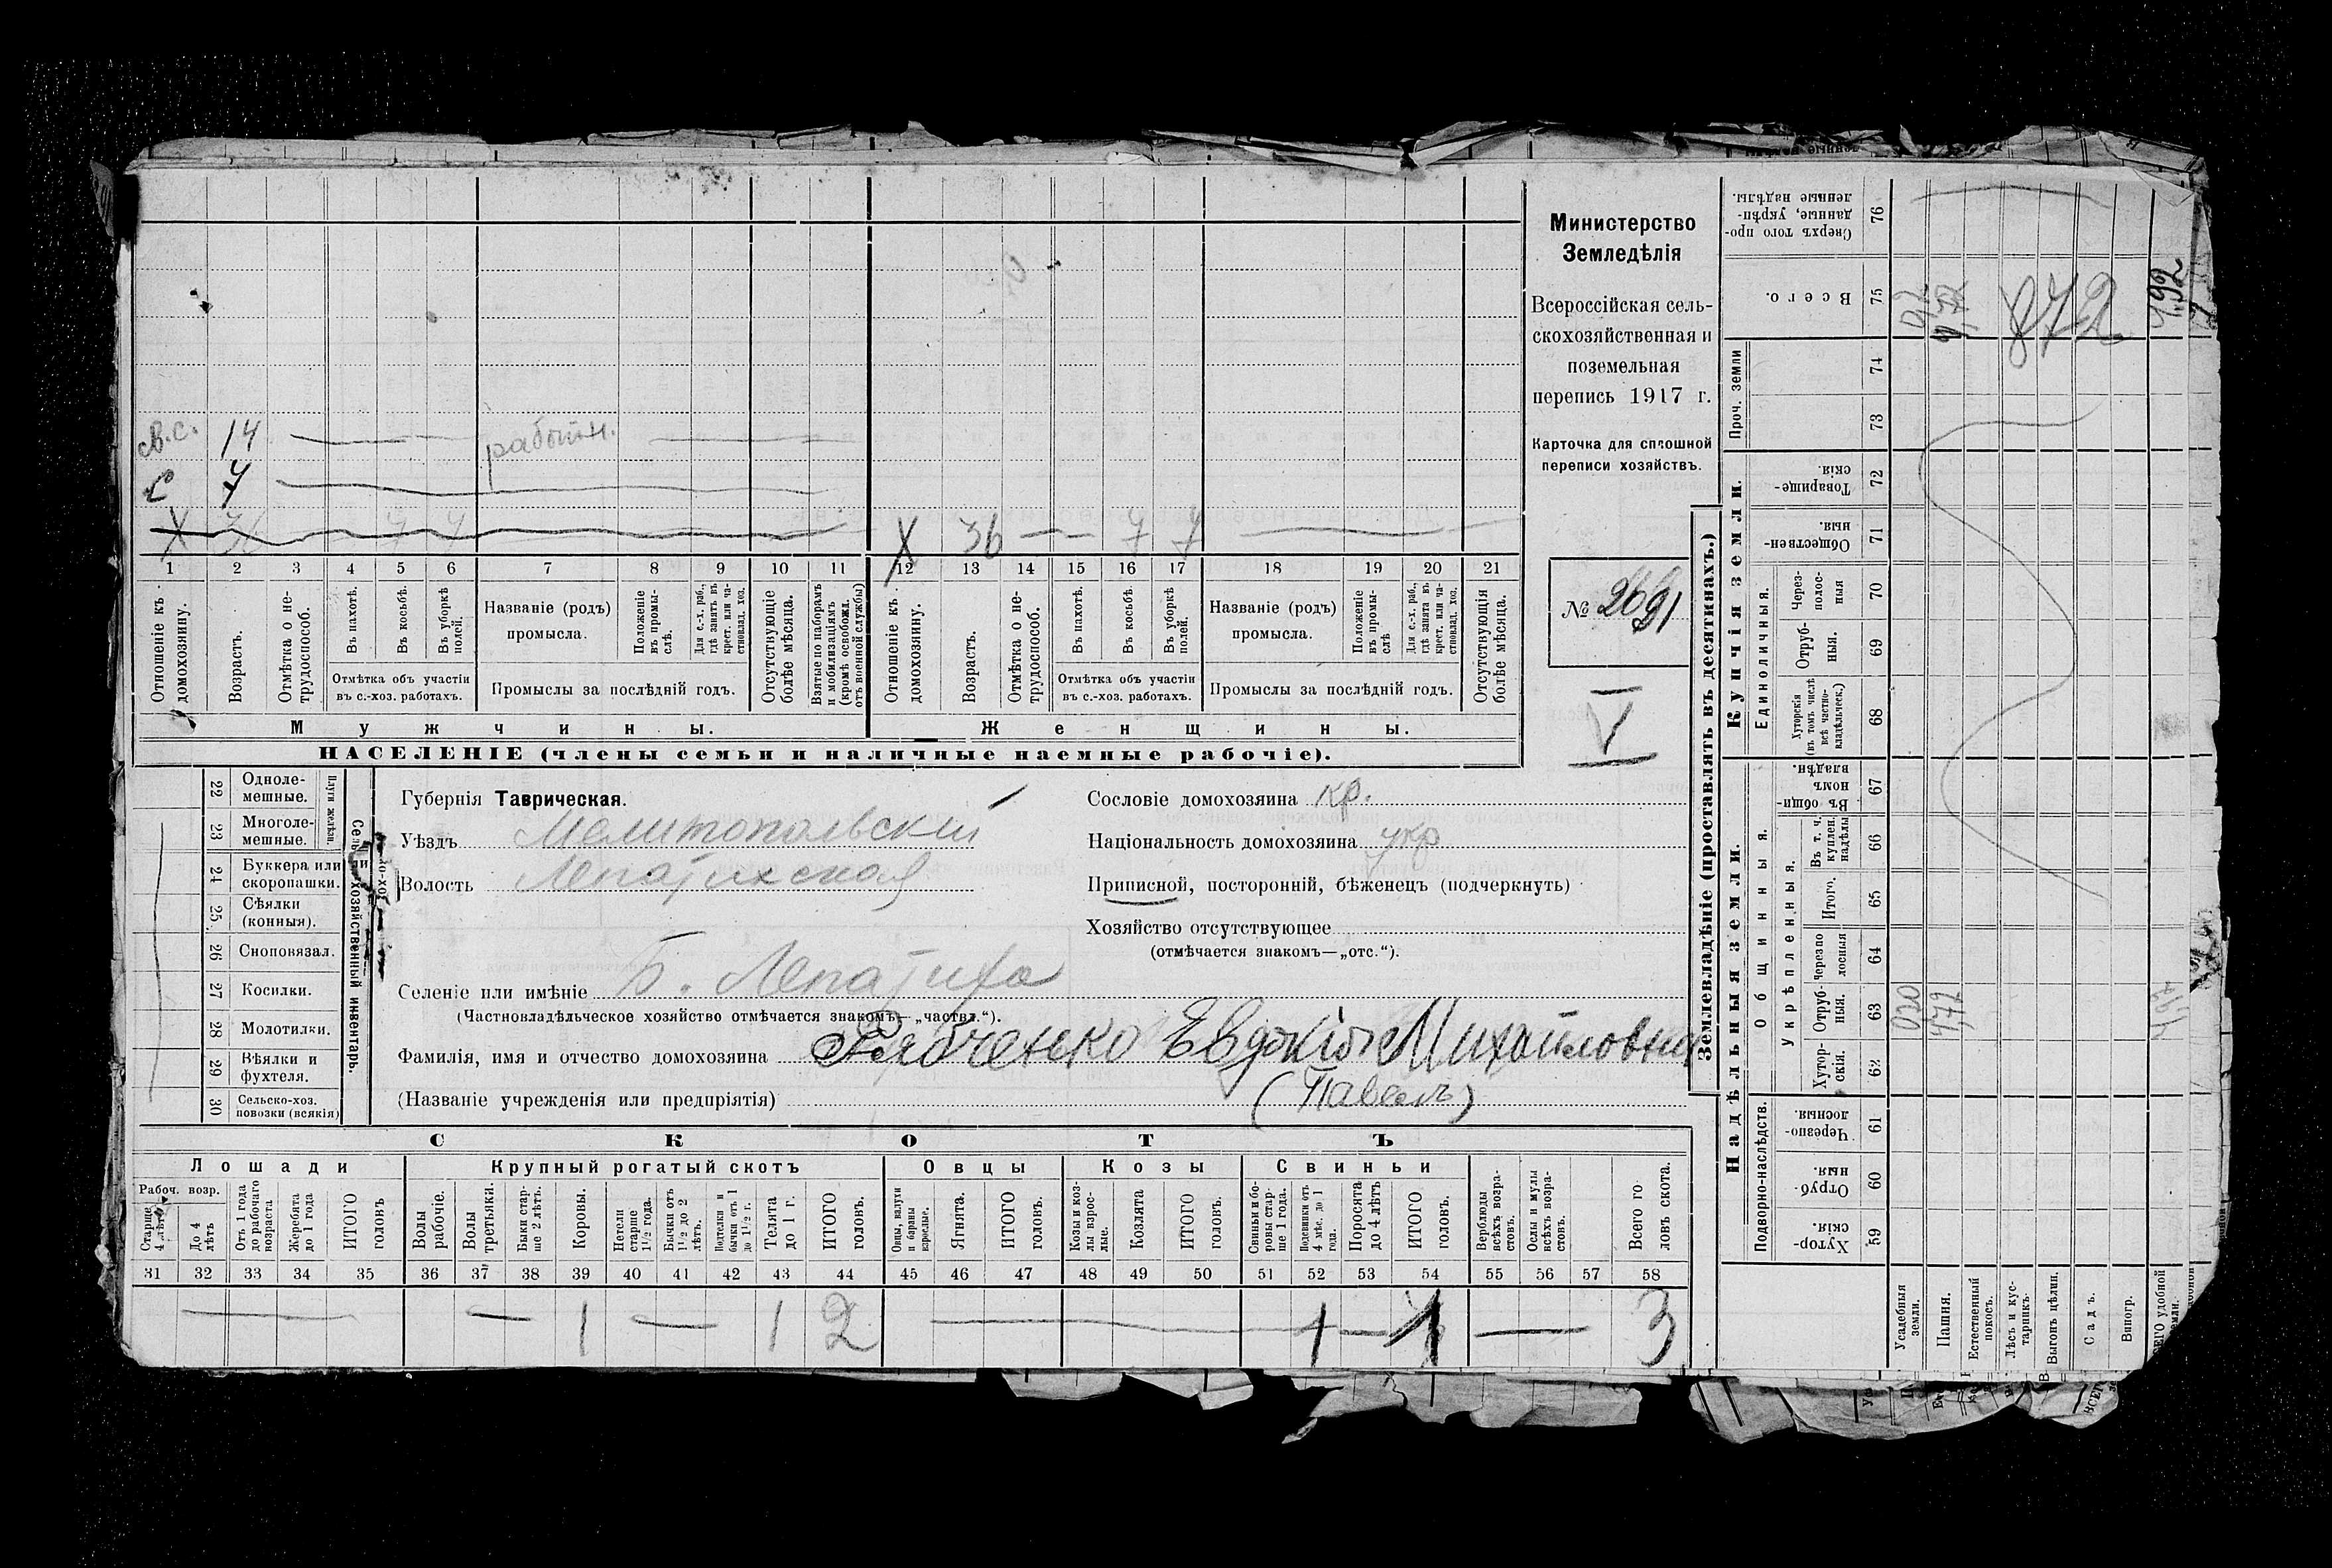 в.с. 14 работн.
с 7
Х 36 7 7 Х 36 7 7
1 2 3 4 5 6 7 8 9 10 11 12 13 14 15 16 17 18 19 20 21
Отношеніе къ домохозяину.
Возрастъ.
Отмѣтка о не-
трудоспособ.
Въ пахотѣ.
Въ косьбѣ.
Въ уборкѣ
полей.
Отмѣтка объ участіи
въ с.-хоз. работахъ.
Названіе (родъ)
промысла.
Положеніе
въ промы-
слѣ.
Для с.-х. раб.,
гдѣ занятъ въ
крест. или ча-
стновлад. хоз.
Промыслы за послѣдній годъ.
Отсутствующіе
болѣе мѣсяца.
Взятые по наборамъ
и мобилизаціямъ
(кромѣ освобожд.
отъ военной службы)
Отношеніе къ
домохозяину.
Возрастъ.
Отмѣтка о не-
трудоспособ.
Въ пахотѣ.
Въ косьбѣ.
Въ уборкѣ
полей.
Отмѣтка объ участіи
въ с.-хоз. работахъ.
Названіе (родъ)
промысла.
Положеніе
въ промы-
слѣ
Для с.-х. раб.,
гдѣ занята въ
крест. или ча-
стновлад. хоз.
Промыслы за послѣдній годъ.
Отсутствующія
болѣе мѣсяца.
Мужчины.
Женщины.
НАСЕЛЕНІЕ (члены семьи и наличные наемные рабочіе).
Министерство
Земледѣлія
Всероссійская сель-
скохозяйственная и
поземельная
перепись 1917 г.
Карточка для сплошной
переписи хозяйствъ.
№ 2691
V
22 Одноле-
мешные.
23 Многоле-
мешные.
Плуги желѣзн.
24 Буккера или
скоропашки.
25 Сѣялки
(конныя).
26 Сноповязал.
27 Косилки.
28 Молотилки.
29 Вѣялки и
фухтеля.
30 Сельско-хоз.
повозки (всякія)
Губернія Таврическая.
Уѣздъ Мелитопольскій
Волость Лепатихская
Селеніе или имѣніе Б. Лепатиха
(Частновладѣльческое хозяйство отмѣчается знакомъ—„частвл.“).
Фамилія, имя и отчество домохозяина Рябченко Евдокія Михайловна
(Названіе учрежденія или предпріятія) (Павелъ)
Сословіе домохозяина кр.
Національность домохозяина укр
Приписной, посторонній, бѣженецъ (подчеркнуть)
Хозяйство отсутствующее
(отмѣчается знакомъ—„отс.“).
СКОТЪ
Лошади
Крупный рогатый скотъ
Овцы
Козы
Свиньи
Рабоч. возр.
Старше
4 лѣтъ
До 4
лѣтъ
Отъ 1 года
до рабочаго
возраста
Жеребята
до 1 года
ИТОГО
головъ
Волы
рабочіе.
Волы
третьяки.
Быки стар-
ше 2 лѣтъ.
Коровы.
Нетели
старше
1½ года.
Бычки отъ
1½ до 2
лѣтъ.
Подтелки и
бычки отъ 1
до 1½ г.
Телята
до 1 г.
ИТОГО
головъ.
Овцы, валухи
и бараны
взрослые.
Ягнята.
ИТОГО
головъ.
Козы и коз-
лы взрос-
лые.
Козлята
ИТОГО
головъ.
Свиньи и бо-
ровы стар-
ше 1 года.
Подсвинки отъ
4 мѣс. до 1
года.
Поросята
до 4 лѣтъ
ИТОГО
головъ.
Верблюды
всѣхъ возра-
стовъ.
Ослы и мулы
всѣхъ возра-
стовъ.
Всего го
ловъ скота.
31 32 33 34 35 36 37 38 39 40 41 42 43 44 45 46 47 48 49 50 51 52 53 54 55 56 57 58
1 1 2 1 1 3
Землевладѣніе (проставлять въ десятинахъ.)
Купчія земли.
Надѣльныя земли.
Сверхъ того про-
данные, укрѣп-
ленные надѣлы.
76
Всего.
75
Проч. земли
74
73
Товарище-
скія.
72
Обществен-
ныя.
71
Единоличныя.
Через-
полос-
ныя
70
Отруб-
ныя.
69
Хуторскія
(въ томъ числѣ
всѣ частно-
владѣльческ.)
68
Общинныя.
Въ общи-
номъ
владѣн.
67
Укрѣпленныя.
Въ т. ч.
куплен.
надѣлы
66
Итого.
65
Черезпо
лосныя
64
Отруб-
ныя.
63
Хутор-
скія.
62
Подворно-наслѣдств.
Черезпо-
лосныя.
61
Отруб-
ныя.
60
Хутор-
скія.
59
Усадебныя
земли.
Пашня.
Естественный
покосъ.
Лѣсъ и кус-
тарникъ.
Выгонъ цѣлин.
Садъ.
Виногр.
872